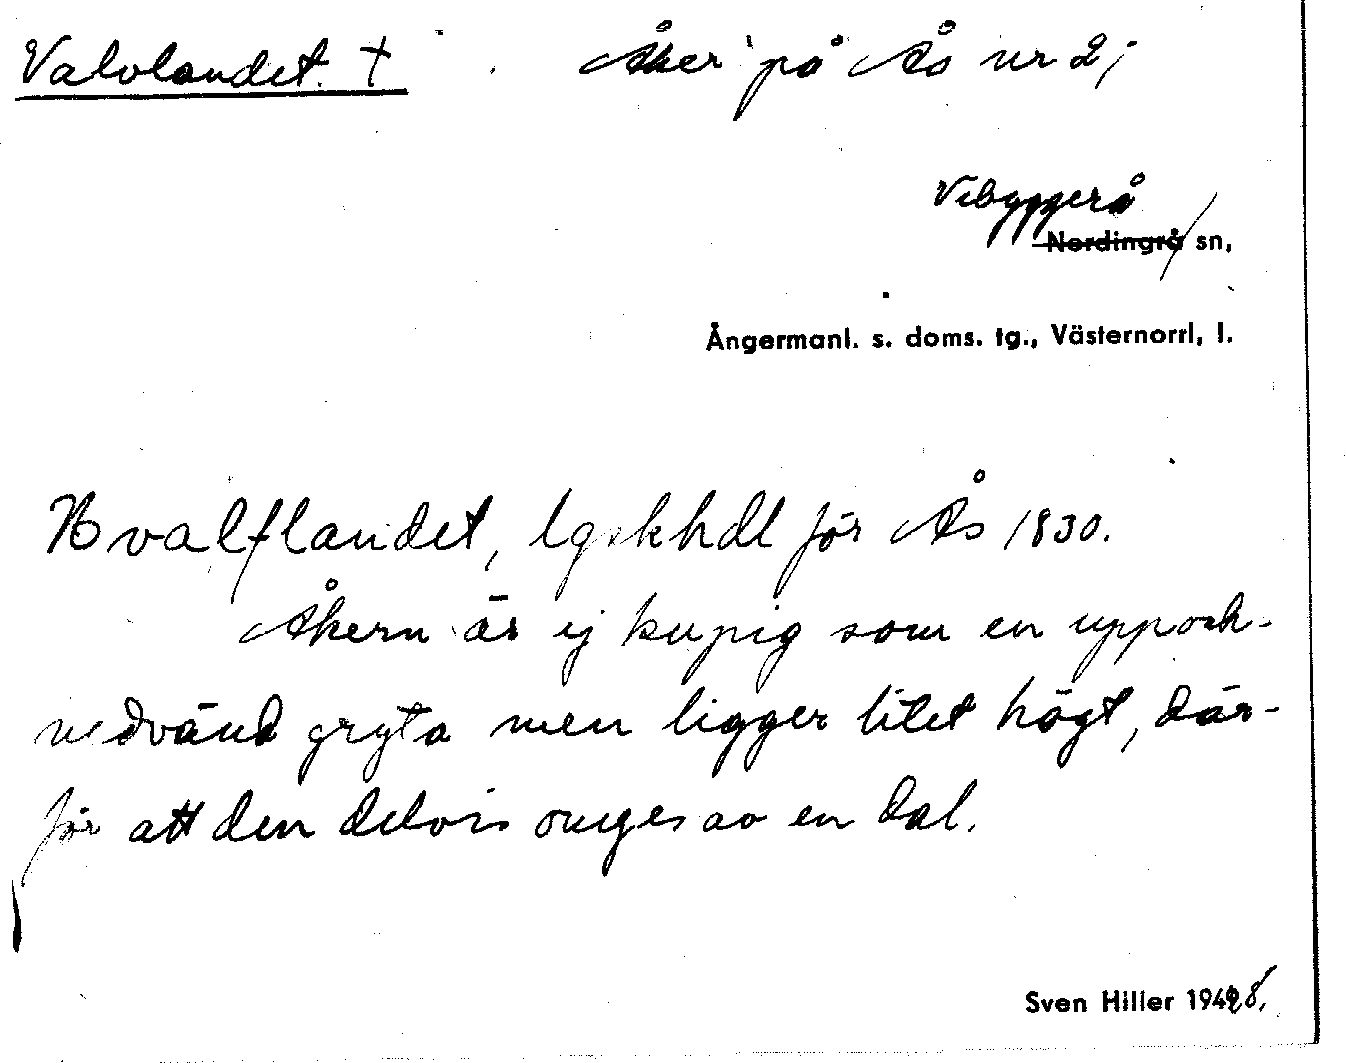 Valvlandet. † Åker på Ås nr 2;
Vibyggerå
Nordingrå sn,
Ångermanl. s. doms. tg., Västernorrl, l.
Hvalflandet, lgskhdl för Ås 1830.
Åkern är ej kupig som en uppoch-
nedvänd gryta men ligger litet högt, där-
för att den delvis omges av en dal.
Sven Hiller 1948.